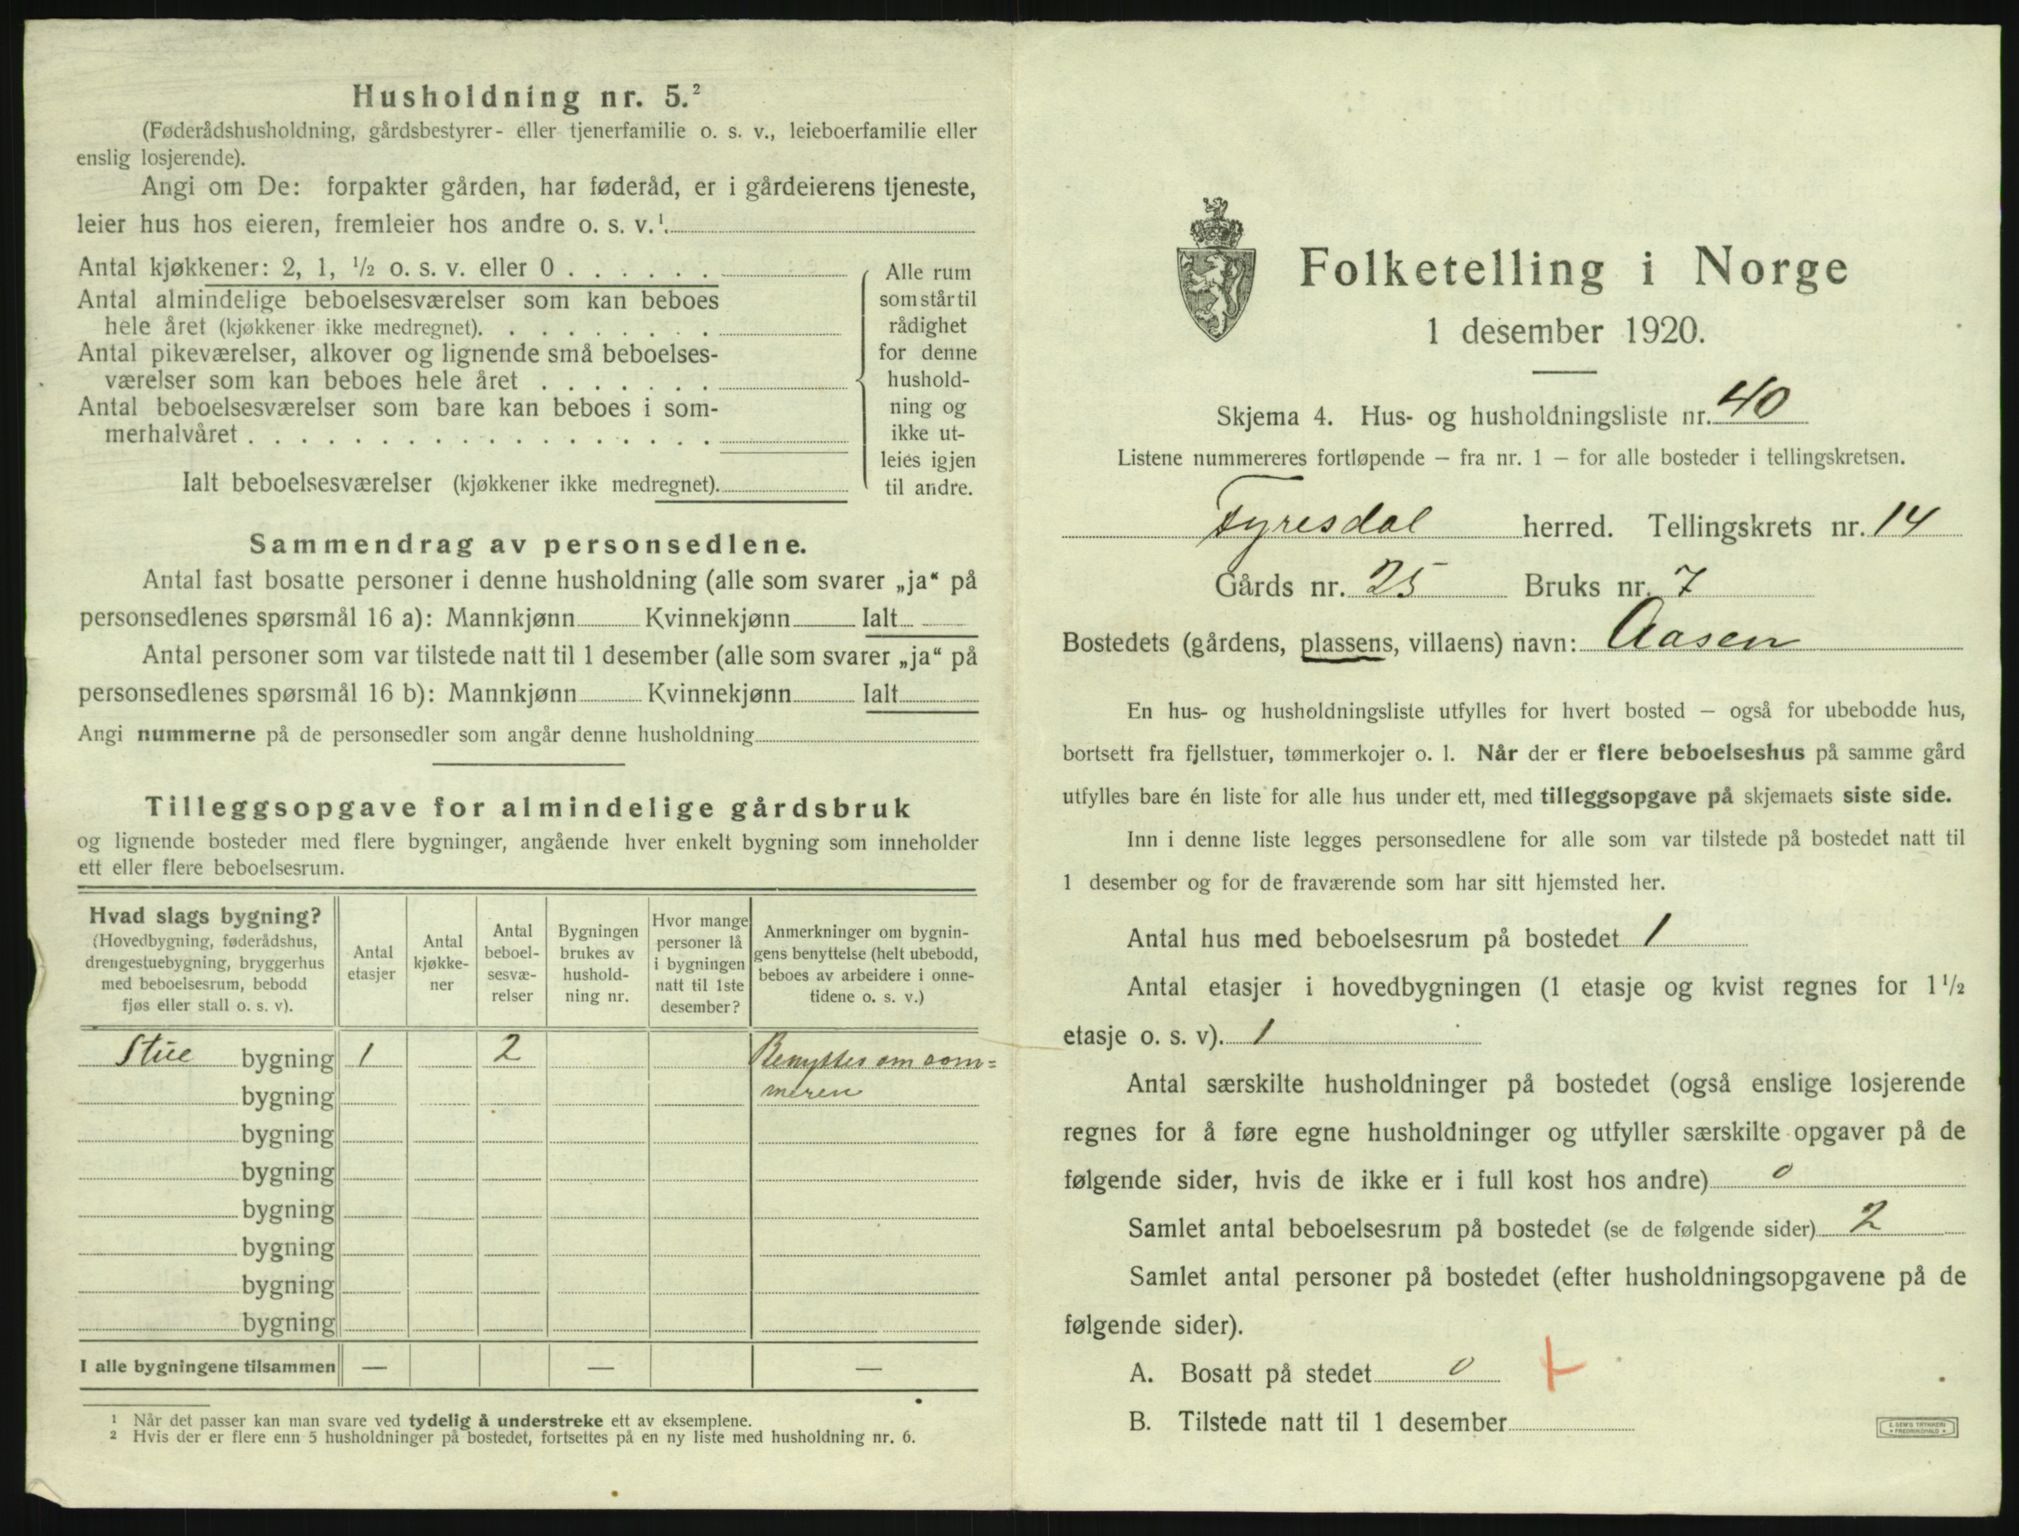 Husholdning nr. 5.²
(Føderådshusholdning, gårdsbestyrer- eller tjenerfamilie o. s. v., leieboerfamilie eller
enslig losjerende).
Angi om De: forpakter gården, har føderåd, er i gårdeierens tjeneste,
leier hus hos eieren, fremleier hos andre o. s. v.¹.
Antal kjøkkener: 2, 1, ½ o. s. v. eller 0 . . . . . .
Antal almindelige beboelsesværelser som kan beboes
hele året (kjøkkener ikke medregnet). . . . . . . . .
Antal pikeværelser, alkover og lignende små beboelses-
værelser som kan beboes hele året . . . . . . .
Antal beboelsesværelser som bare kan beboes i som-
merhalvåret . . . . . . . . . . . . . . . . . .
Ialt beboelsesværelser (kjøkkener ikke medregnet).
Alle rum
som står til
rådighet
for denne
hushold-
ning og
ikke ut-
leies igjen
til andre.
Sammendrag av personsedlene.
Antal fast bosatte personer i denne husholdning (alle som svarer „ja“ på
personsedlenes spørsmål 16 a): Mannkjønn Kvinnekjønn Ialt
Antal personer som var tilstede natt til 1 desember (alle som svarer „ja“ på
personsedlenes spørsmål 16 b): Mannkjønn Kvinnekjønn Ialt
Angi nummerne på de personsedler som angår denne husholdning
Tilleggsopgave for almindelige gårdsbruk
og lignende bosteder med flere bygninger, angående hver enkelt bygning som inneholder
ett eller flere beboelsesrum.
Hvad slags bygning?
(Hovedbygning, føderådshus,
drengestuebygning, bryggerhus
med beboelsesrum, bebodd
fjøs eller stall o. s. v).
Antal
etasjer
Antal
kjøkke-
ner
Antal
beboel-
sesvæ-
relser
Bygningen
brukes av
hushold-
ning nr.
Hvor mange
personer lå
i bygningen
natt til 1ste
desember?
Anmerkninger om bygnin-
gens benyttelse (helt ubebodd,
beboes av arbeidere i onne-
tidene o. s. v.)
Stue bygning 1 2 Benyttes om som=
bygning meren
bygning
bygning
bygning
bygning
bygning
bygning
I alle bygningene tilsammen — — —
¹ Når det passer kan man svare ved tydelig å understreke ett av eksemplene.
² Hvis der er flere enn 5 husholdninger på bostedet, fortsettes på en ny liste med husholdning nr. 6.
Folketelling i Norge
1 desember 1920.
Skjema 4. Hus- og husholdningsliste nr. 40
Listene nummereres fortløpende – fra nr. 1 – for alle bosteder i tellingskretsen.
Fyresdal herred. Tellingskrets nr. 14
Gårds nr. 25 Bruks nr. 7
Bostedets (gårdens, plassens, villaens) navn: Aasen
En hus- og husholdningsliste utfylles for hvert bosted – også for ubebodde hus,
bortsett fra fjellstuer, tømmerkojer o. l. Når der er flere beboelseshus på samme gård
utfylles bare én liste for alle hus under ett, med tilleggsopgave på skjemaets siste side.
Inn i denne liste legges personsedlene for alle som var tilstede på bostedet natt til
1 desember og for de fraværende som har sitt hjemsted her.
Antal hus med beboelsesrum på bostedet 1
Antal etasjer i hovedbygningen (1 etasje og kvist regnes for 1½
etasje o. s. v). 1
Antal særskilte husholdninger på bostedet (også enslige losjerende
regnes for å føre egne husholdninger og utfyller særskilte opgaver på de
følgende sider, hvis de ikke er i full kost hos andre) 0
Samlet antal beboelsesrum på bostedet (se de følgende sider) 2
Samlet antal personer på bostedet (efter husholdningsopgavene på de
følgende sider).
A. Bosatt på stedet 0
B. Tilstede natt til 1 desember
E. SEM'S TRYKKERI
* FREDRIKSHALD *